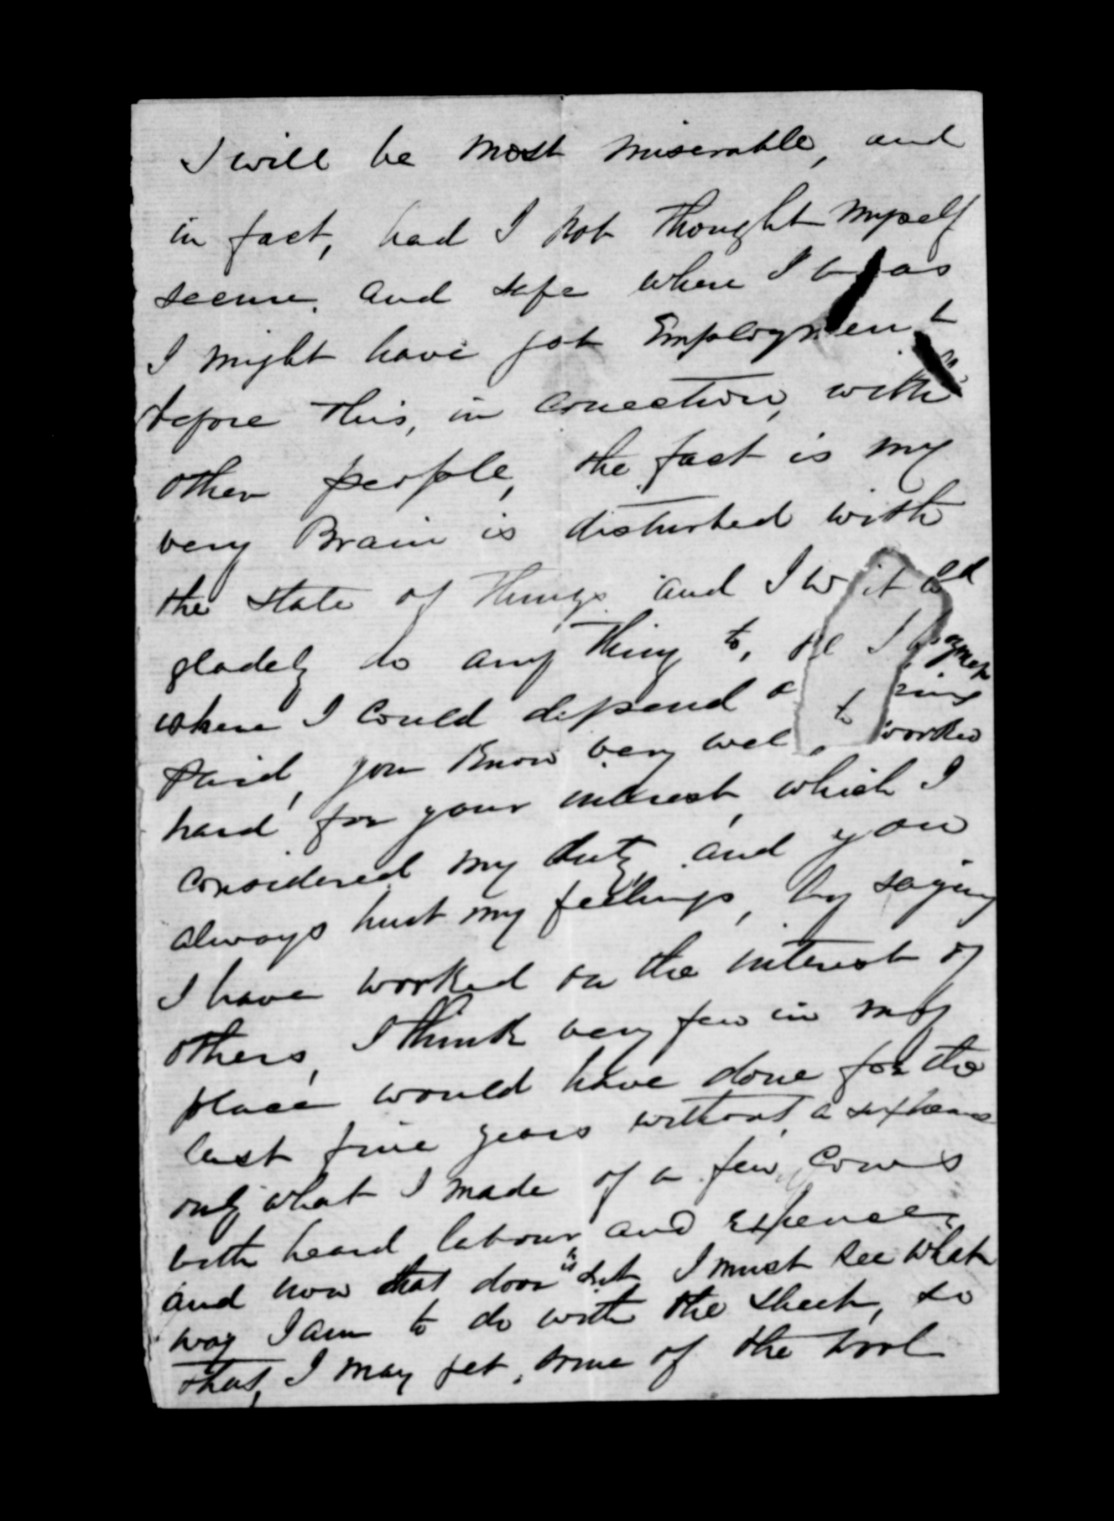 I will be most miserable, and
in fact, had I not thought myself
secure. and safe where I was
I might have got Employment
before this, in conection, with
other people, the fact is my
very Brain is disturbed with
the state of things and I w
gladely do any thing to,
where I could depend
Paid, you Know very wel worked
hard for your interest, which I
considered my duty and you
always hurt my feelings, by saying
I have worked on the interest of
others, I think very few in my
place would have done for the
last five years without a sixpence
only what I made of a few, Cows
with heard labour and expences
and now that door is shut I must see what
way I am to do with the sheep, so
that, I may get, some of the wool